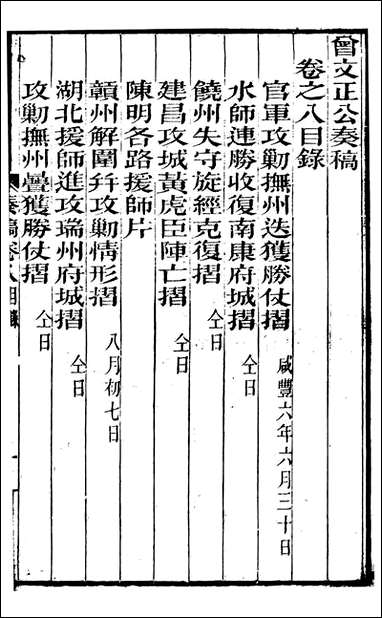 曾文正公奏稿
卷之八目錄
官軍攻勦撫州迭獲勝仗摺 咸豐六年六月三十日
水師連勝收復南康府城摺 仝日
饒州失守旋經克復摺 仝日
建昌攻城黃虎臣陣亡摺 仝日
陳明各路援師片
贛州解圍幷攻勦情形摺 八月初七日
湖北援師進攻瑞州府城摺 仝日
攻勦撫州疊獲勝仗摺 仝日
奏稿卷八目錄
一